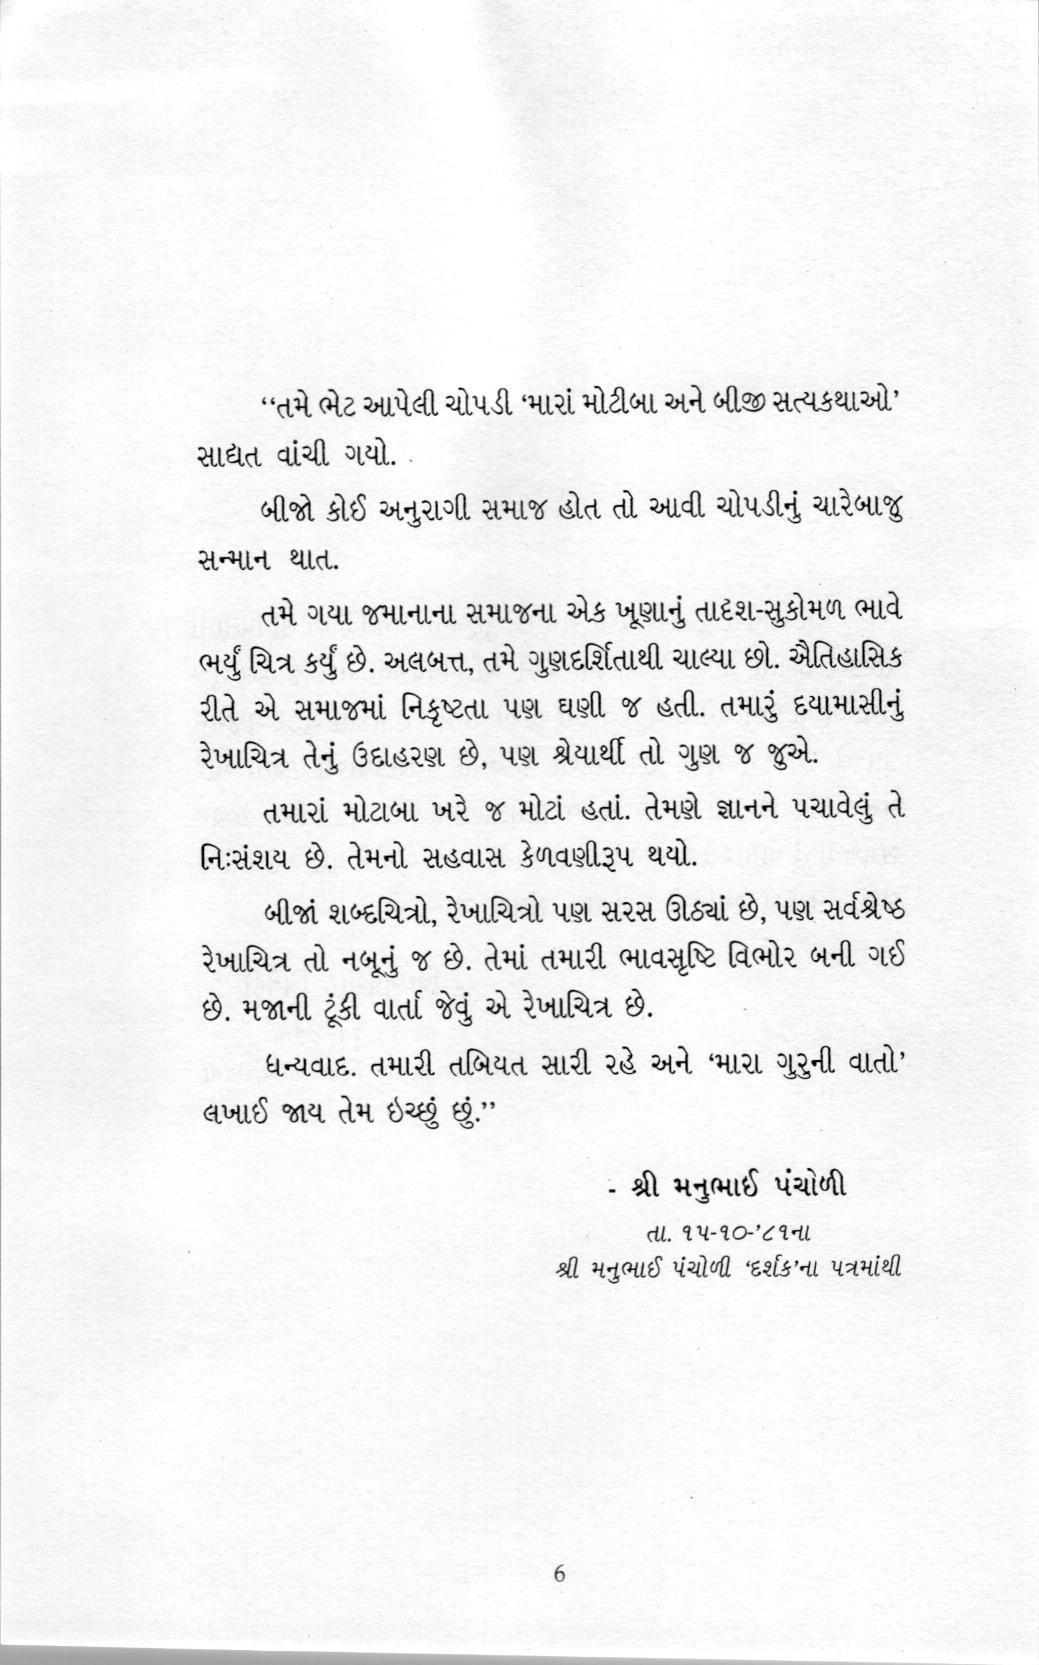 “તમે ભેટ આપેલી ચોપડી ‘મારાં મોટીબા અને બીજી સત્યકથાઓ’
સાદ્યત વાંચી ગયો.
બીજો કોઈ અનુરાગી સમાજ હોત તો આવી ચોપડીનું ચારેબાજુ
સન્માન થાત.
તમે ગયા જમાનાના સમાજના એક ખૂણાનું તાદૃશ-સુકોમળ ભાવે
ભર્યું ચિત્ર કર્યું છે. અલબત્ત, તમે ગુણદર્શિતાથી ચાલ્યા છો. ઐતિહાસિક
રીતે એ સમાજમાં નિકૃષ્ટતા પણ ઘણી જ હતી. તમારું દયામાસીનું
રેખાચિત્ર તેનું ઉદાહરણ છે, પણ શ્રેયાર્થી તો ગુણ જ જુએ.
તમારાં મોટાબા ખરે જ મોટાં હતાં. તેમણે જ્ઞાનને પચાવેલું તે
નિઃસંશય છે. તેમનો સહવાસ કેળવણીરૂપ થયો.
બીજાં શબ્દચિત્રો, રેખાચિત્રો પણ સરસ ઊઠ્યાં છે, પણ સર્વશ્રેષ્ઠ
રેખાચિત્ર તો નબૂનું જ છે. તેમાં તમારી ભાવસૃષ્ટિ વિભોર બની ગઈ
છે. મજાની ટૂંકી વાર્તા જેવું એ રેખાચિત્ર છે.
ધન્યવાદ. તમારી તબિયત સારી રહે અને ‘મારા ગુરુની વાતો’
લખાઈ જાય તેમ ઇચ્છું છું.”
- શ્રી મનુભાઈ પંચોળી
તા. ૧૫-૧૦-’૮૧ના
શ્રી મનુભાઈ પંચોળી ‘દર્શક’ના પત્રમાંથી
6